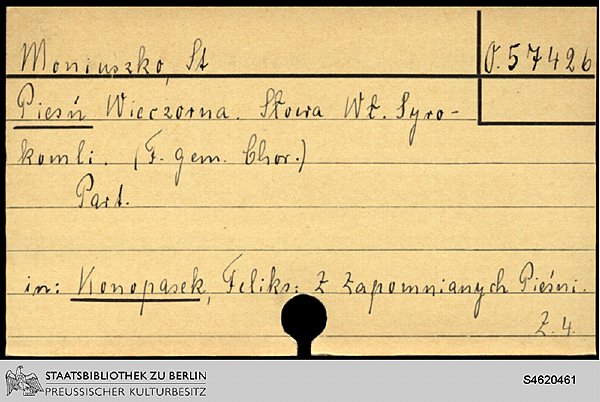 Moniuszko, St
O. 57426
Pieśń Wieczorna. Słowa Wł. Syro-
komli. (F. gem. Chor.)
Part.
in: Konopasek, Feliks: Z Zapomnianych Pieśni.
Z. 4.
STAATSBIBLIOTHEK ZU BERLIN
PREUSSISCHER KULTURBESITZ
S4620461